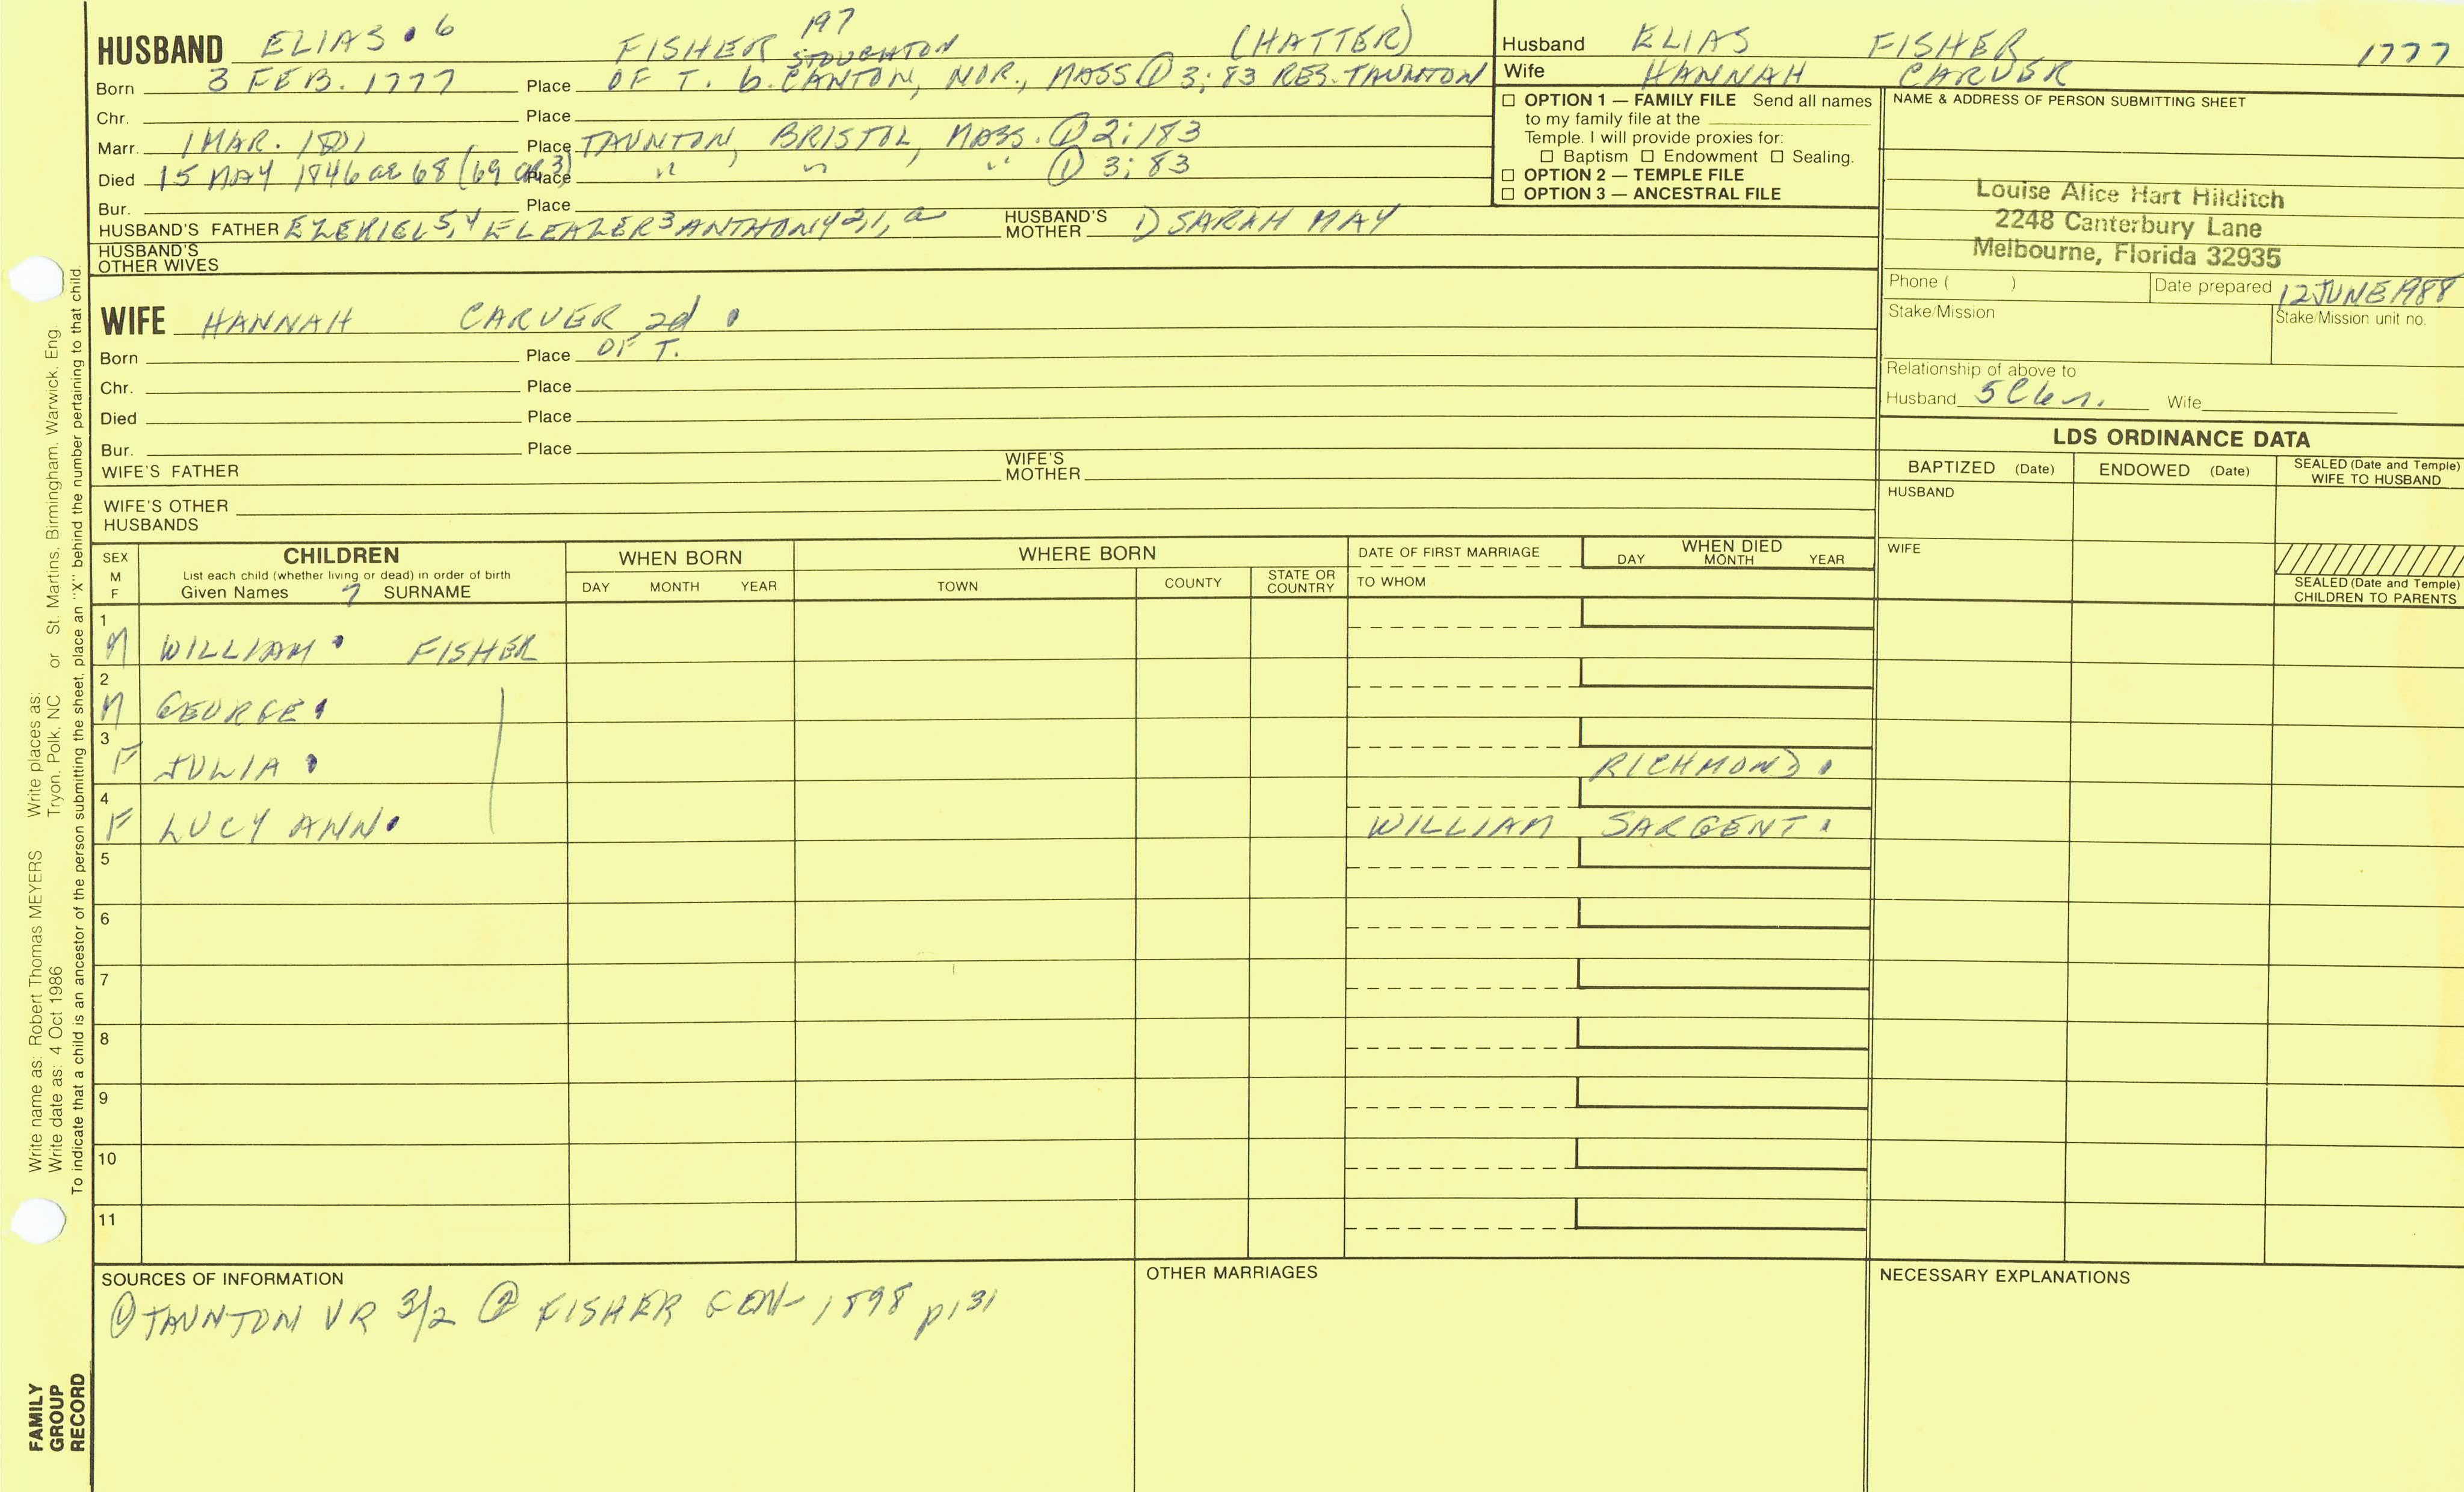 197
HUSBAND ELIAS • 6 FISHER STOUGHTON (HATTER)
Born 3 FEB. 1777 Place OF T. b. CANTON, NOR., MASS ① 3; 83 RES. TAUNTON
Chr. Place
Marr. 1 MAR. 1801 Place TAUNTON, BRISTOL, MASS. ① 2; 183
Died 15 MAY 1846 ae 68 (69 Place " " " ① 3; 83
Bur. Place
HUSBAND'S FATHER EZEKIEL 5,4 ELEAZER 3 ANTHONY 2,1, a HUSBAND'S MOTHER 1) SARAH MAY
HUSBAND'S OTHER WIVES
Husband ELIAS FISHER 1777
Wife HANNAH CARVER
☐ OPTION 1 — FAMILY FILE Send all names
to my family file at the
Temple. I will provide proxies for:
☐ Baptism ☐ Endowment ☐ Sealing.
☐ OPTION 2 — TEMPLE FILE
☐ OPTION 3 — ANCESTRAL FILE
NAME & ADDRESS OF PERSON SUBMITTING SHEET
Louise Alice Hart Hilditch
2248 Canterbury Lane
Melbourne, Florida 32935
Phone ( ) Date prepared 12 JUNE 1988
Stake/Mission Stake/Mission unit no.
Relationship of above to
Husband 5C Wife
WIFE HANNAH CARVER 2d •
Born Place OF T.
Chr. Place
Died Place
Bur. Place
WIFE'S FATHER WIFE'S MOTHER
WIFE'S OTHER
HUSBANDS
LDS ORDINANCE DATA
BAPTIZED (Date) ENDOWED (Date) SEALED (Date and Temple) WIFE TO HUSBAND
HUSBAND
WIFE
SEALED (Date and Temple)
CHILDREN TO PARENTS
SEX M F
CHILDREN
List each child (whether living or dead) in order of birth
Given Names 7 SURNAME
WHEN BORN
DAY MONTH YEAR
WHERE BORN
TOWN COUNTY STATE OR COUNTRY
DATE OF FIRST MARRIAGE
TO WHOM
WHEN DIED
DAY MONTH YEAR
1
M WILLIAM • FISHER
2
M GEORGE •
3
F JULIA • RICHMOND •
4
F LUCY ANN • WILLIAM SARGENT •
5
6
7
8
9
10
11
SOURCES OF INFORMATION
① TAUNTON VR 3/2 ② FISHER GEN- 1898 p131
OTHER MARRIAGES
NECESSARY EXPLANATIONS
Write name as: Robert Thomas MEYERS Write places as:
Write date as: 4 Oct 1986 Tryon, Polk, NC or St. Martins, Birmingham, Warwick, Eng
To indicate that a child is an ancestor of the person submitting the sheet, place an "X" behind the number pertaining to that child.
FAMILY
GROUP
RECORD